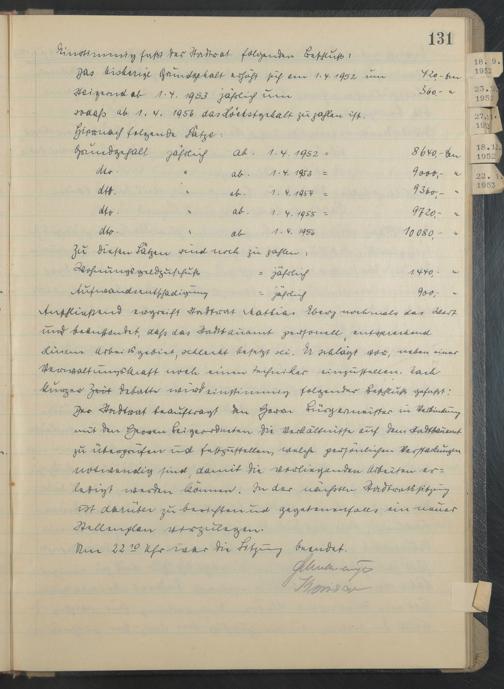 131
Einstimmig faßt der Stadtrat folgenden Beschluß:
Das bisherige Grundgehalt erhöht sich am 1.4.1952 um 420,- DM
steigend ab 1.4.1953 jährlich um 360,- "
sodaß ab 1.4.1956 das Höchstgehalt zu zahlen ist.
Hiernach folgende Sätze:
Grundgehalt jährlich ab 1.4.1952 = 8640,- DM
dto. " ab 1.4.1953 = 9000,- "
dto. " ab 1.4.1954 = 9360,- "
dto. " ab 1.4.1955 = 9720,- "
dto. " ab 1.4.1956 10080,- "
Zu diesen Sätzen sind noch zu zahlen:
Wohnungsgeldzuschuß = jährlich 1440,- "
Aufwandsentschädigung = jährlich 900,- "
Anschließend ergreift Stadtrat Mathias nochmals das Wort
und beanstandet, daß das Stadtbauamt personell, entsprechend
seinem Arbeitsgebiet, schlecht besetzt sei. Er schlägt vor, neben einer
Verwaltungskraft noch einen Techniker einzustellen. Nach
kurzer Debatte wird einstimmig folgender Beschluß gefaßt:
Der Stadtrat beauftragt den Herrn Bürgermeister in Verbindung
mit den Herren Beigeordneten die Verhältnisse auf dem Stadtbauamt
zu überprüfen und festzustellen, welche persönlichen
notwendig sind, damit die vorliegenden Arbeiten er-
ledigt werden können. In der nächsten Stadtratssitzung
ist darüber zu berichten und gegebenenfalls ein neuer
Stellenplan vorzulegen.
Um 22 Uhr war die Sitzung beendet.
18. 9.
1952
18.11.
1952
22. 1.
1953